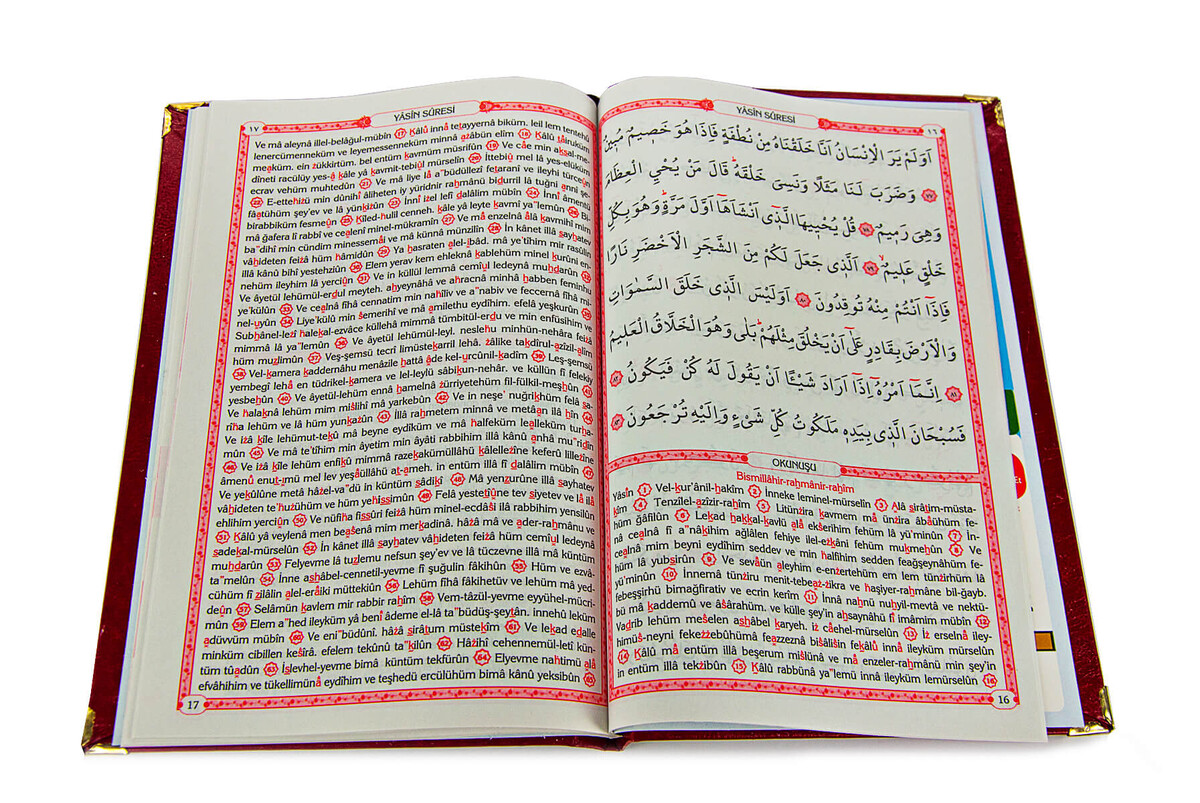 YÂSÎN SÛRESİ
١٦
اَوَلَمْ يَرَ الْاِنْسَانُ اَنَّا خَلَقْنَاهُ مِنْ نُطْفَةٍ فَاِذَا هُوَ خَصٖيمٌ مُبٖينٌ
﴿٧٧﴾ وَضَرَبَ لَنَا مَثَلًا وَنَسِىَ خَلْقَهُ قَالَ مَنْ يُحْيِي الْعِظَامَ
وَهِىَ رَمٖيمٌ ﴿٧٨﴾ قُلْ يُحْيٖيهَا الَّذٖٓى اَنْشَاَهَٓا اَوَّلَ مَرَّةٍ وَهُوَ بِكُلِّ
خَلْقٍ عَلٖيمٌ ﴿٧٩﴾ اَلَّذٖى جَعَلَ لَكُمْ مِنَ الشَّجَرِ الْاَخْضَرِ نَارًا
فَاِذَٓا اَنْتُمْ مِنْهُ تُوقِدُونَ ﴿٨٠﴾ اَوَلَيْسَ الَّذٖى خَلَقَ السَّمٰوَاتِ
وَالْاَرْضَ بِقَادِرٍ عَلٰٓى اَنْ يَخْلُقَ مِثْلَهُمْ بَلٰى وَهُوَ الْخَلَّاقُ الْعَلٖيمُ
﴿٨١﴾ اِنَّمَٓا اَمْرُهُٓ اِذَٓا اَرَادَ شَيْـًٔا اَنْ يَقُولَ لَهُ كُنْ فَيَكُونُ ﴿٨٢﴾
فَسُبْحَانَ الَّذٖى بِيَدِهٖ مَلَكُوتُ كُلِّ شَىْءٍ وَاِلَيْهِ تُرْجَعُونَ ﴿٨٣﴾
OKUNUŞU
Bismillâhir-rahmânir-rahîm
Yâsîn 1 Vel-kur'ânil-hakîm 2 İnneke leminel-mürselîn 3 Alâ sirâtim-müsta-
kîm 4 Tenzîlel-azîzir-rahîm 5 Litünzira kavmem mâ ünzira âbâühüm fe-
hüm ğâfilûn 6 Lekad hakkal-kavlü alâ ekserihim fehüm lâ yü'minûn 7 İn-
nâ cealnâ fî a"nâkihim ağlâlen fehiye ilel-ezkâni fehüm mukmehûn 8 Ve
cealnâ mim beyni eydîhim seddev ve min halfihim sedden feağşeynâhüm fe-
hüm lâ yubsirûn 9 Ve sevâün aleyhim e-enzertehüm em lem tünzirhüm lâ
yü'minûn 10 İnnemâ tünziru menit-tebeaz-zikra ve haşiyer-rahmâne bil-ğayb.
febeşşirhü bimağfirativ ve ecrin kerîm 11 İnnâ nahnü nuhyil-mevtâ ve nektü-
bü mâ kaddemû ve âsârahüm. ve külle şey'in ahsaynâhü fî imâmim mübîn 12
Vadrib lehüm meselen ashâbel karyeh. iz câehel-mürselûn 13 İz erselnâ iley-
himüs-neyni fekezzebûhümâ feazzeznâ bisâlisin fekâlû innâ ileyküm mürselûn
14 Kâlû mâ entüm illâ beşerum mislünâ ve mâ enzeler-rahmânü min şey'in
in entüm illâ tekzibûn 15 Kâlû rabbünâ ya"lemü innâ ileyküm lemürselûn 16
16
١٧
YÂSÎN SÛRESİ
Ve mâ aleynâ illel-belâğul-mubîn 17 Kâlû innâ tetayyernâ biküm. leil lem tentehû
lenercümenneküm ve leyemessenneküm minnâ azâbün elîm 18 Kâlû tâiruküm
meaküm. ein zükkirtüm. bel entüm kavmüm müsrifûn 19 Ve câe min aksal-me-
dîneti racülüy yes-â kâle yâ kavmit-tebiul mürselîn 20 İttebiû mel lâ yes-elüküm
ecrav vehüm muhtedûn 21 Ve mâ liye lâ a"büdüllezî fetaranî ve ileyhi türceûn
22 E-ettehizü min dûnihî âliheten iy yüridnir rahmânü bidurril lâ tuğni annî şe-
fâatühüm şey'ev ve lâ yünkizûn 23 İnnî izel lefî dalâlim mübîn 24 İnnî âmentü
birabbiküm fesmeûn 25 Kîled-hulil cenneh. kâle yâ leyte kavmî ya"lemûn 26 Bi-
mâ ğafera lî rabbî ve cealenî minel-mükramîn 27 Ve mâ enzelnâ alâ kavmihî mim
ba"dihî min cündim minessemâi ve mâ künnâ münzilîn 28 İn kânet illâ sayhatev
vâhideten feizâ hüm hâmidûn 29 Ya hasraten alel-ibâd. mâ ye'tîhim mir rasûlin
illâ kânû bihî yestehziûn 30 Elem yerav kem ehleknâ kablehüm minel kurûni en-
nehüm ileyhim lâ yerciûn 31 Ve in küllül lemmâ cemîul ledeynâ muhdarûn 32
Ve âyetül lehümül-erdul meyteh. ahyeynâhâ ve ahracnâ minhâ habben feminhu
ye'külûn 33 Ve cealnâ fîhâ cennatim min nahîliv ve a"nabiv ve feccernâ fîhâ mi-
nel-uyûn 34 Liye'külû min semerihî ve mâ amilethu eydîhim. efelâ yeşkurûn 35
Subhânel-lezî halekal-ezvâce küllehâ mimmâ tümbitül-erdu ve min enfüsihim ve
mimmâ lâ ya"lemûn 36 Ve âyetül lehümül-leyl. neslehu minhün-nehâra feizâ
hüm muzlimûn 37 Veş-şemsü tecrî limüstekarril lehâ. zâlike takdîrul-azîzil-alîm
38 Vel-kamera kaddernâhu menâzile hattâ âde kel-urcûnil-kadîm 39 Leş-şemsü
yembegî lehâ en tüdrikel-kamera ve lel-leylü sâbikun-nehâr. ve küllün fî felekiy
yesbehûn 40 Ve âyetül-lehüm ennâ hamelnâ zürriyetehüm fil-fülkil-meşhûn 41
Ve halaknâ lehüm mim mislihî mâ yarkebûn 42 Ve in neşe' nuğrikhüm felâ sa-
rîha lehüm ve lâ hüm yunkazûn 43 İllâ rahmetem minnâ ve metâan ilâ hîn 44
Ve izâ kîle lehümut-tekû mâ beyne eydîküm ve mâ halfeküm lealleküm turha-
mûn 45 Ve mâ te'tîhim min âyetim min âyâti rabbihim illâ kânû anhâ mu"ridîn
46 Ve izâ kîle lehüm enfikû mimmâ razekakümüllâhü kâlellezîne keferû lillezîne
âmenû enut-imü mel lev yeşâüllâhü at-ameh. in entüm illâ fî dalâlim mübîn 47
Ve yekûlûne metâ hâzel-va"dü in küntüm sâdikî 48 Mâ yenzurûne illâ sayhatev
vâhideten te'huzühüm ve hüm yehissimûn 49 Felâ yestetîûne tev siyetev ve lâ ilâ
ehlihim yerciûn 50 Ve nüfiha fîssûri feizâ hüm minel-ecdâsi ilâ rabbihim yensilûn
51 Kâlû yâ veylenâ men beasenâ mim merkadinâ. hâzâ mâ ve ader-rahmânu ve
sadekal-mürselûn 52 İn kânet illâ sayhatev vâhideten feizâ hüm cemîul ledeynâ
muhdarûn 53 Felyevme lâ tuzlemu nefsun şey'ev ve lâ tüczevne illâ mâ küntüm
ta"melûn 54 İnne ashâbel-cennetil-yevme fî şugulin fâkihûn 55 Hüm ve ezvâ-
cühüm fî zilâlin alel-erâiki müttekiûn 56 Lehüm fîhâ fâkihetüv ve lehüm mâ yed-
deûn 57 Selâmün kavlem mir rabbir rahîm 58 Vem-tâzül-yevme eyyühel-mücri-
mûn 59 Elem a"hed ileyküm yâ benî âdeme el-lâ ta"büdüş-şeytân. innehû leküm
adüvvüm mübîn 60 Ve eni"büdûnî. hâzâ sirâtum müstekîm 61 Ve lekad edalle
minküm cibillen kesîrâ. efelem tekûnû ta"kilûn 62 Hâzihî cehennemül-letî kün-
tüm tûadûn 63 İslevhel-yevme bimâ küntüm tekfürûn 64 Elyevme nahtimü alâ
efvâhihim ve tükellimünâ eydîhim ve teşhedü ercülühüm bimâ kânû yeksibûn 65
17